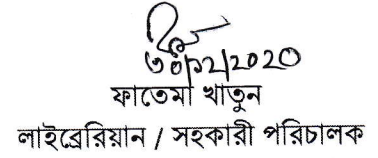 ৩০/১২/২০২০
ফাতেমা খাতুন
লাইব্রেরিয়ান / সহকারী পরিচালক